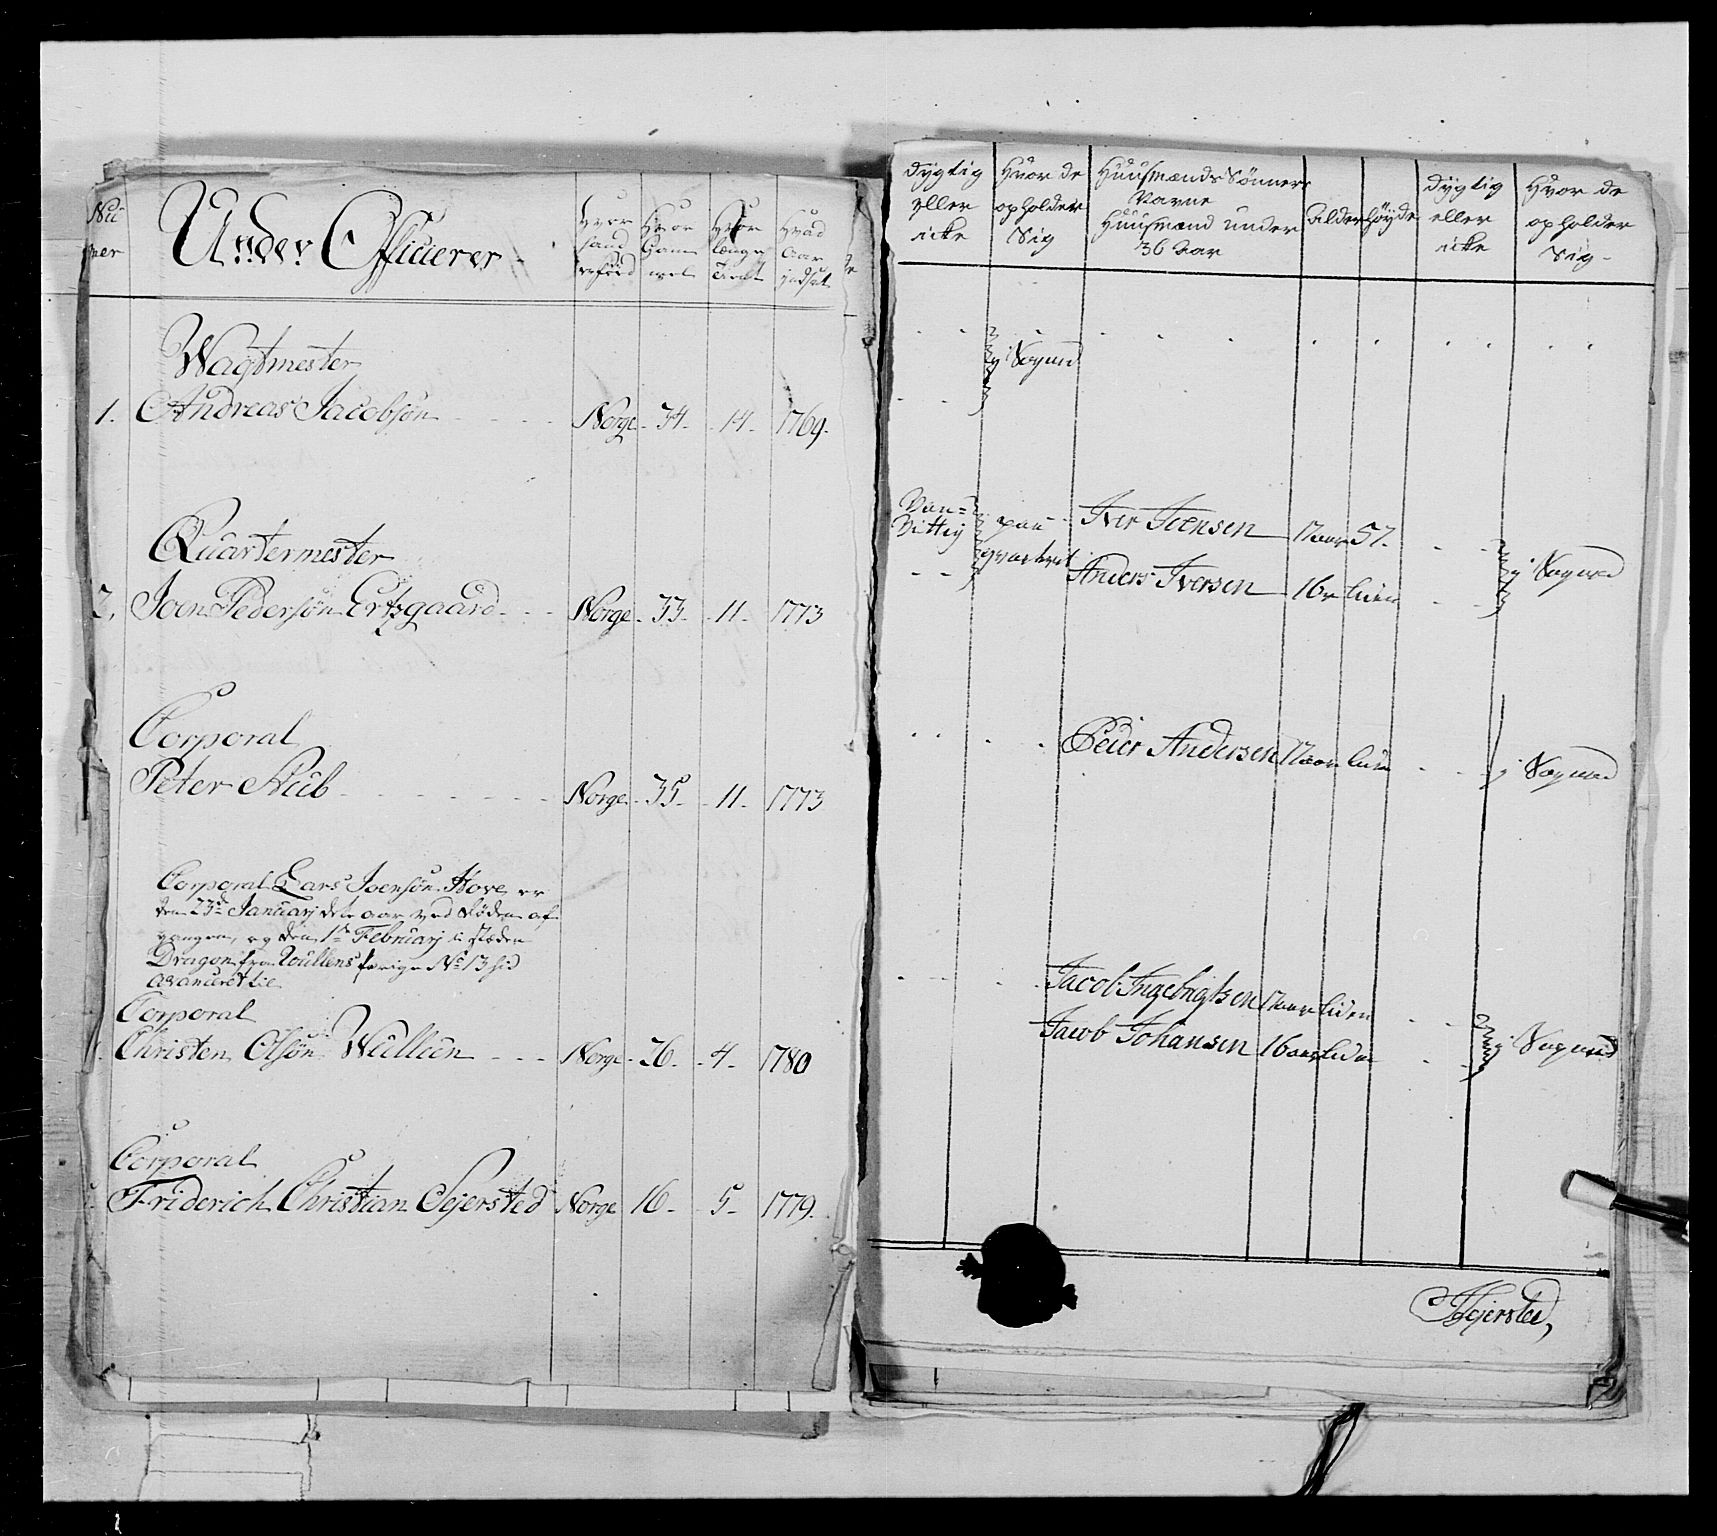 Nu
mer
Under Officierer
Hvor
fand
Hvor
Gam
mel
Hvor
længe
tient
Hvad
Aar
indsat
Wagtmester
1. Andreas Jacobsøn Norge 34. 14. 1769.
Quartermester
2. Joen Pedersøn Ertzgaard Norge 33. 11. 1773
Corporal
Peter Stub Norge 35. 11. 1773
Corporal Lars Joensøn Hove er
den 23de Januarj dette aar ved Døden af
gangen, og den 1te Februarj i stæden
Dragon fra Wullens forige No 13 hid
avanceret til
Corporal
Christen Olsøn Wullum Norge 26. 4. 1780
Corporal
Friderich Christian Sejersted Norge 16. 5. 1779.
dygtig
eller
icke
Hvor de
opholder
Sig
Huusmænds Sønners
Navne
Huusmænd under
36 Aar
Alder
Høyde
dygtig
eller
icke
Hvor de
opholder
Sig
i Sognet
Van=
Vittig
paa
qvarteret
Iver Joensen 17 aar 57.
Anders Iversen 16
i Sognet
Peder Andersen 17 aar
i Sognet
Jacob Ingebrigtsen 17 aar liden
Jacob Johansen 16 aar liden
i Sognet
Sejersted